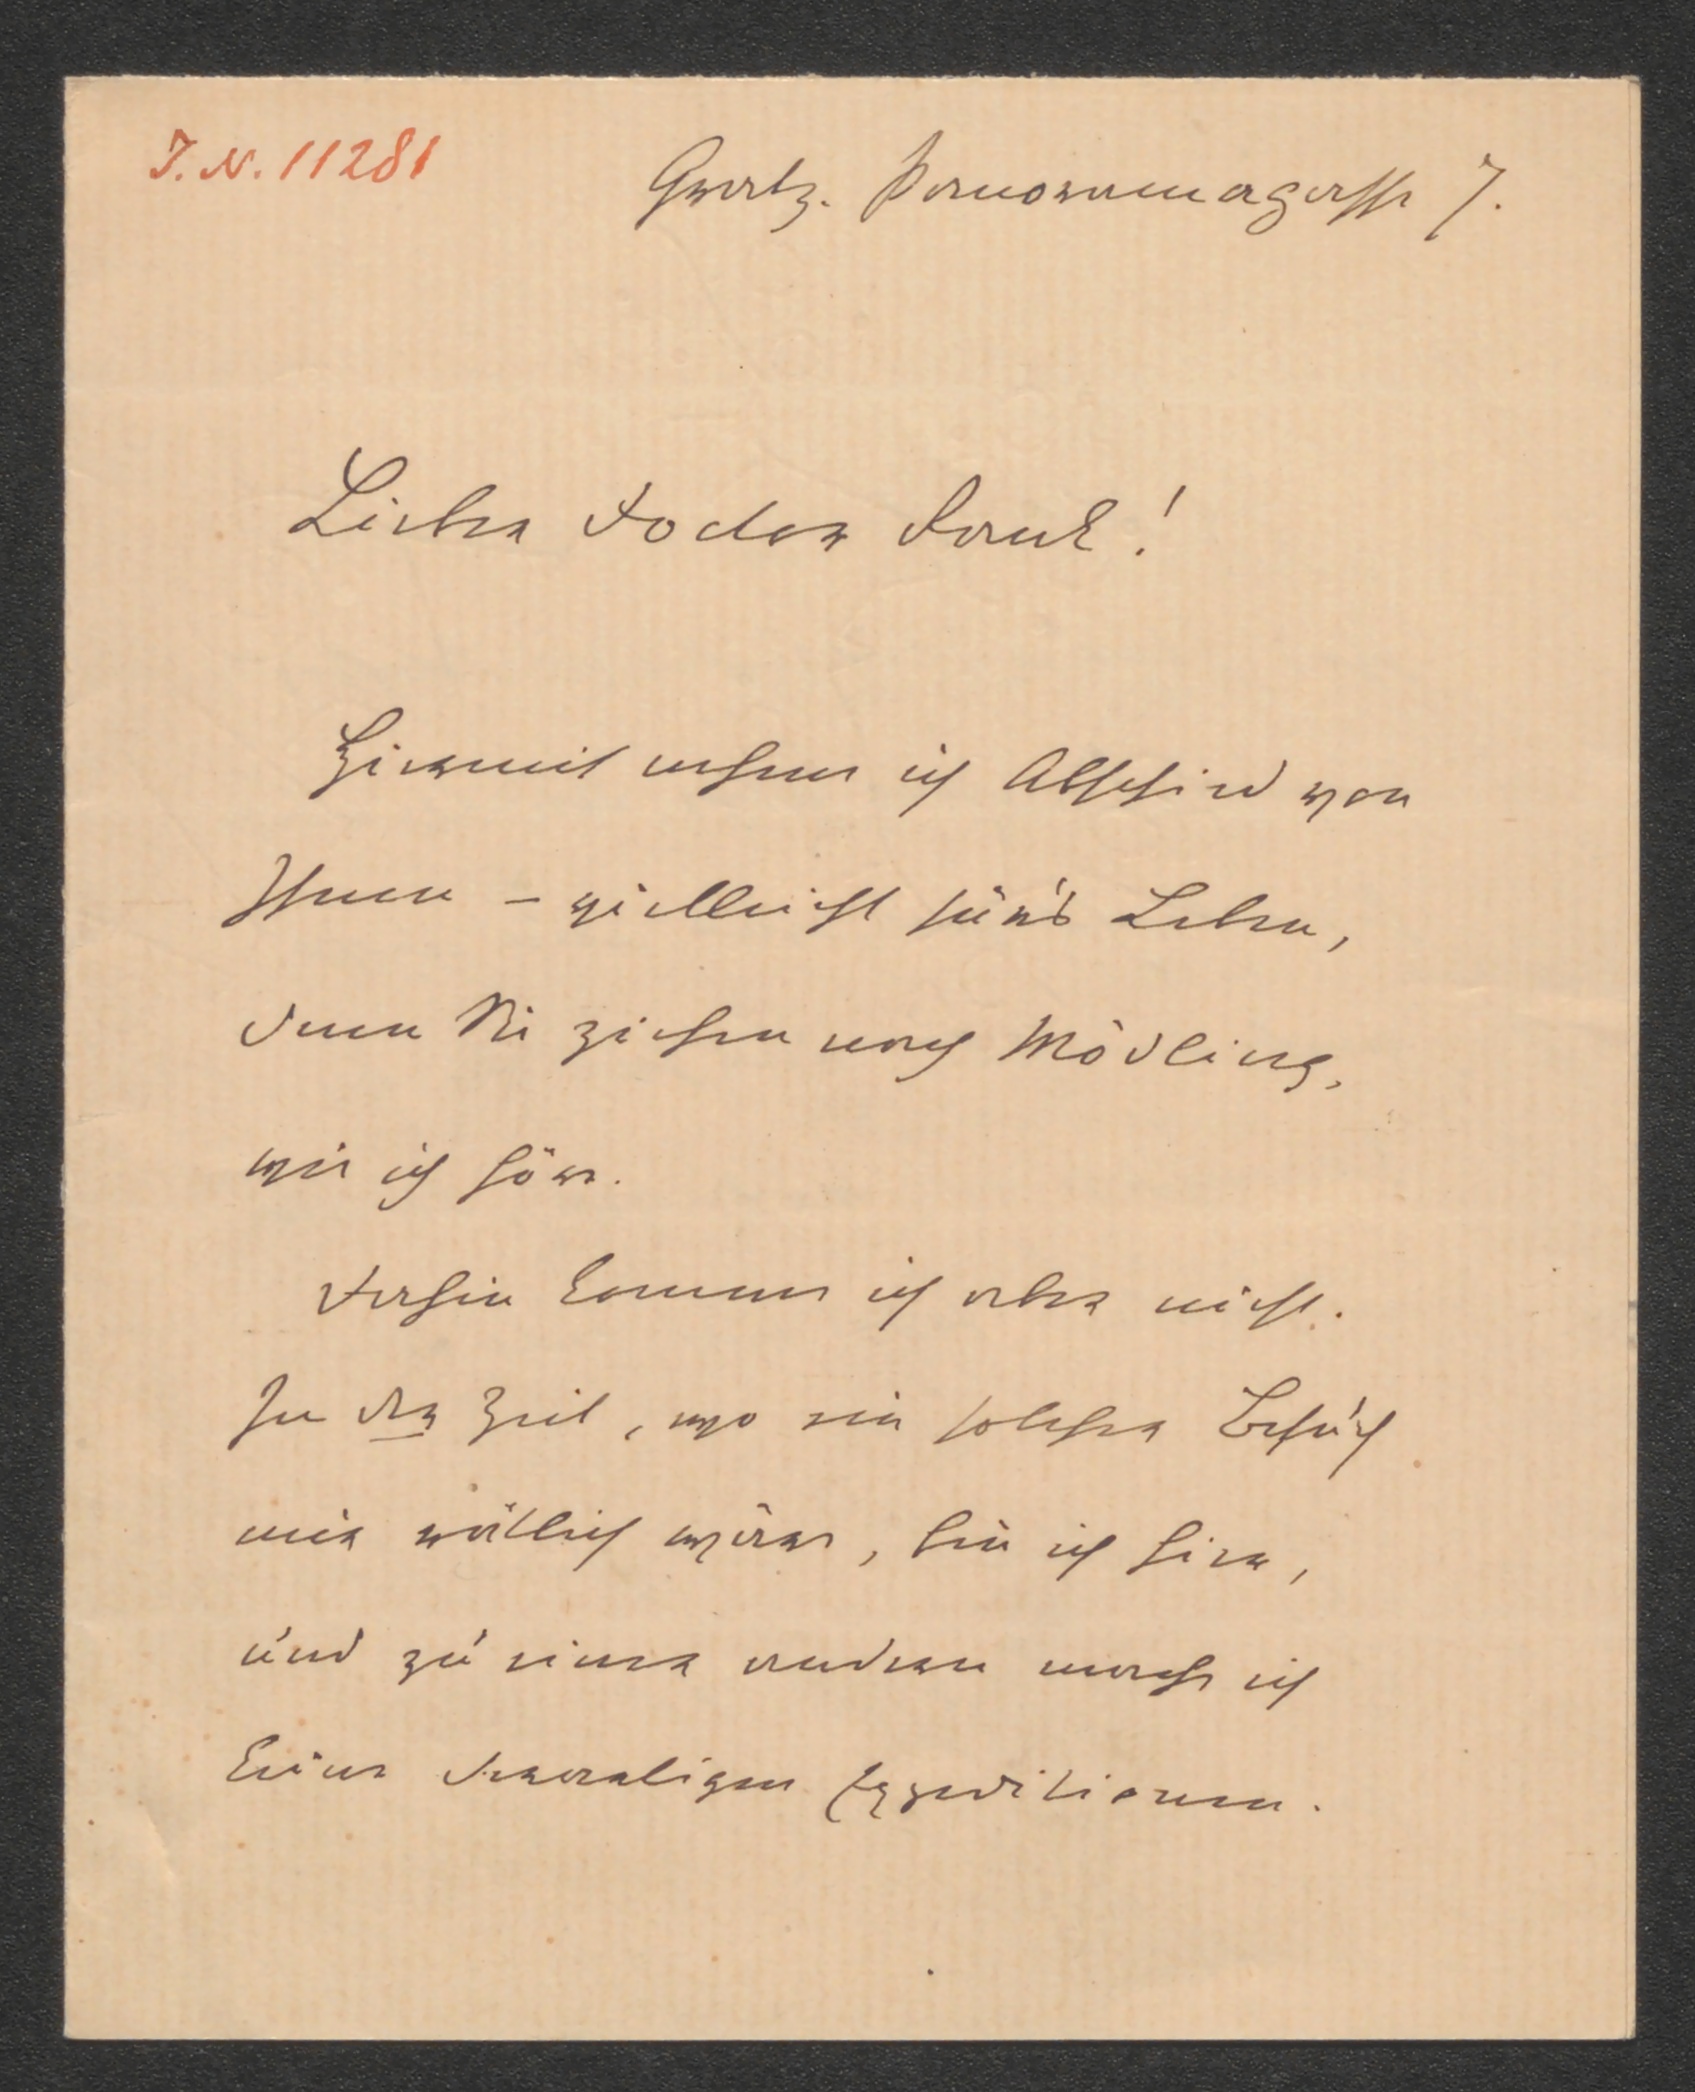 J. N. 11281
Gratz. Panoramagasse 7.
Lieber Doctor !
Hiermit nehme ich Abschied von
Ihnen – vielleicht für's Leben,
denn Sie ziehen nach Mödling,
wie ich höre.
Dahin komme ich aber nicht.
In der Zeit, wo ein solcher Besuch
mir rätlich wäre, bin ich hier,
und zu einer andern mache ich
keine derartigen Expeditionen.